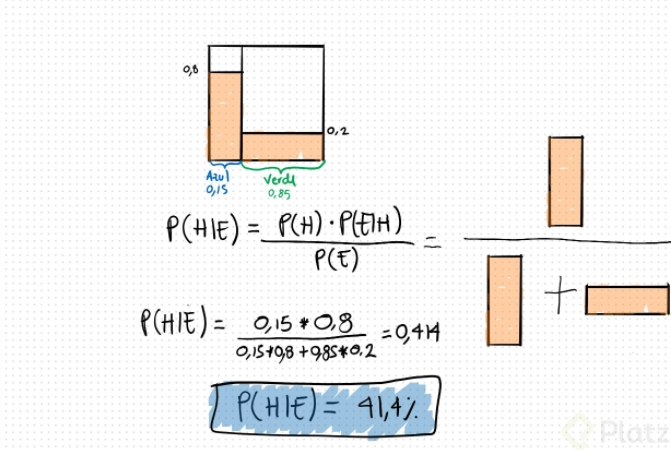 0,8
0,2
Azul
0,15
Verde
0,85
P(H|E) = P(H) · P(E|H) =
P(E)
+
P(H|E) = 0,15 * 0,8 = 0,414
0,15*0,8 + 0,85*0,2
P(H|E) = 41,4%
Platz